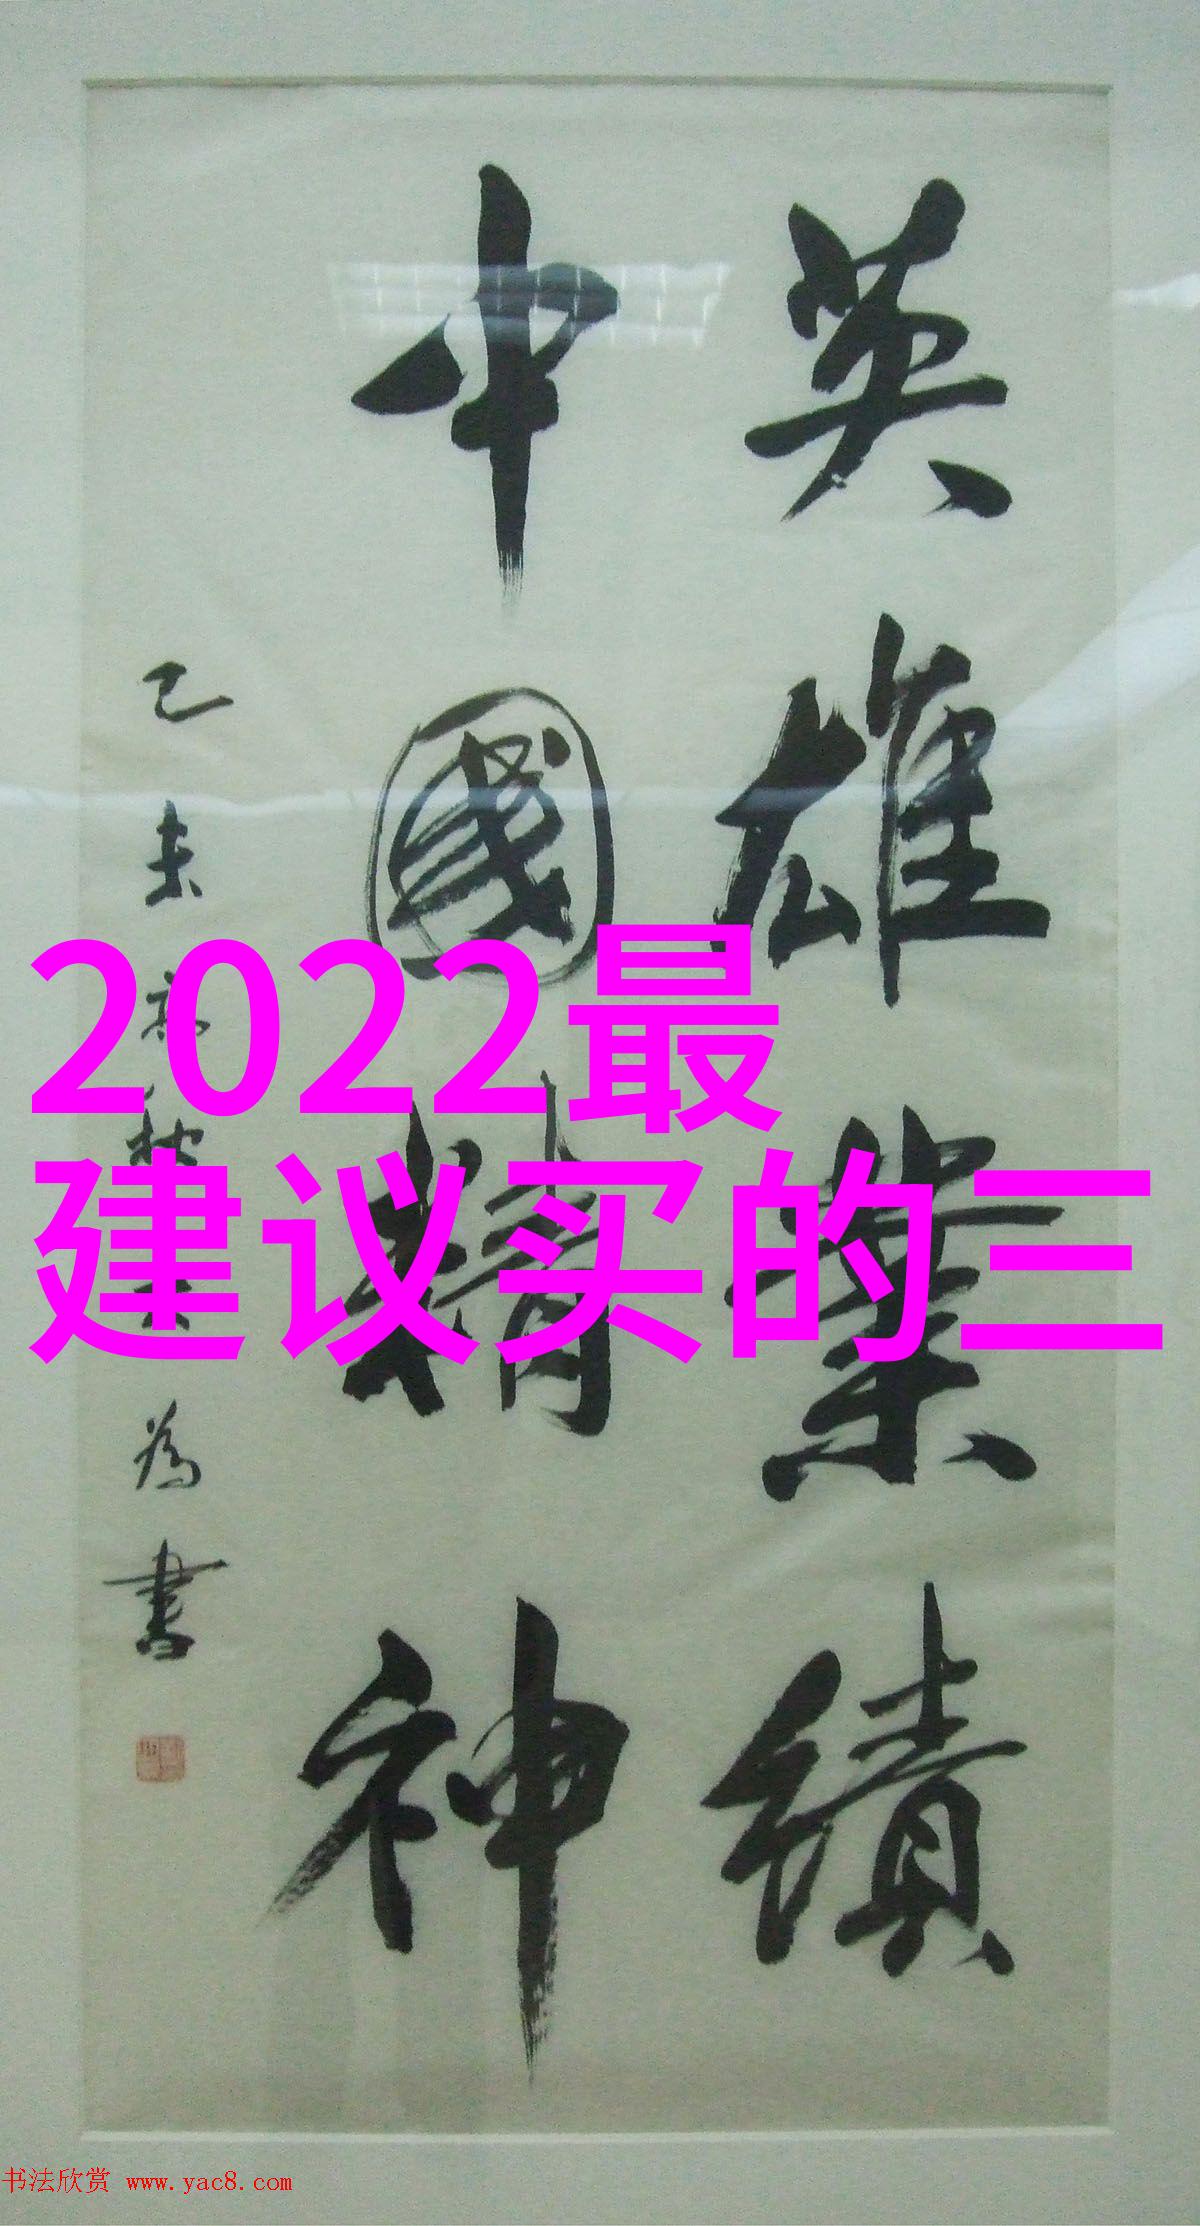 英雄業績
中國精神
己未初秋
為書
2022最
建议买的三
书法欣赏 www.yac8.com